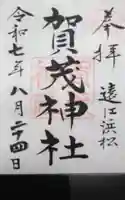 奉拝
遠江浜松
賀茂神社
令和七年八月二十四日